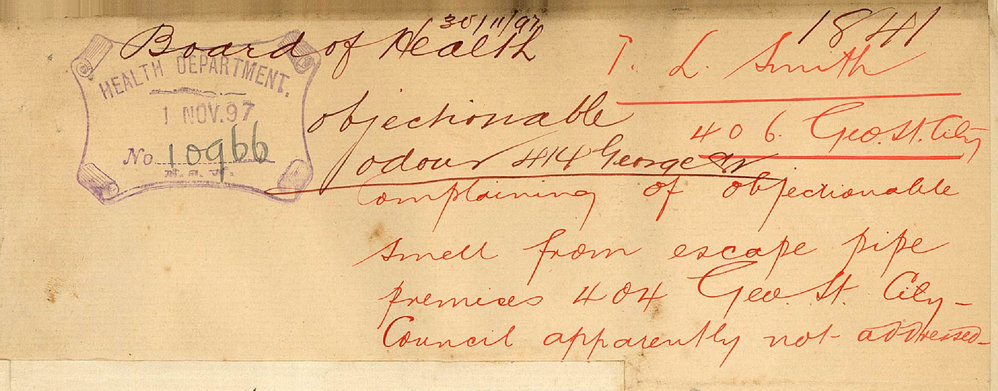 30/11/97
1841
Board of Health
T. L. Smith
HEALTH DEPARTMENT.
1 NOV. 97
No 10966
N.S.W.
objectionable
406. Geo. St. City
odour 414 George St
Complaining of objectionable
smell from escape pipe
premises 404 Geo. St. City-
Council apparently not addressed-